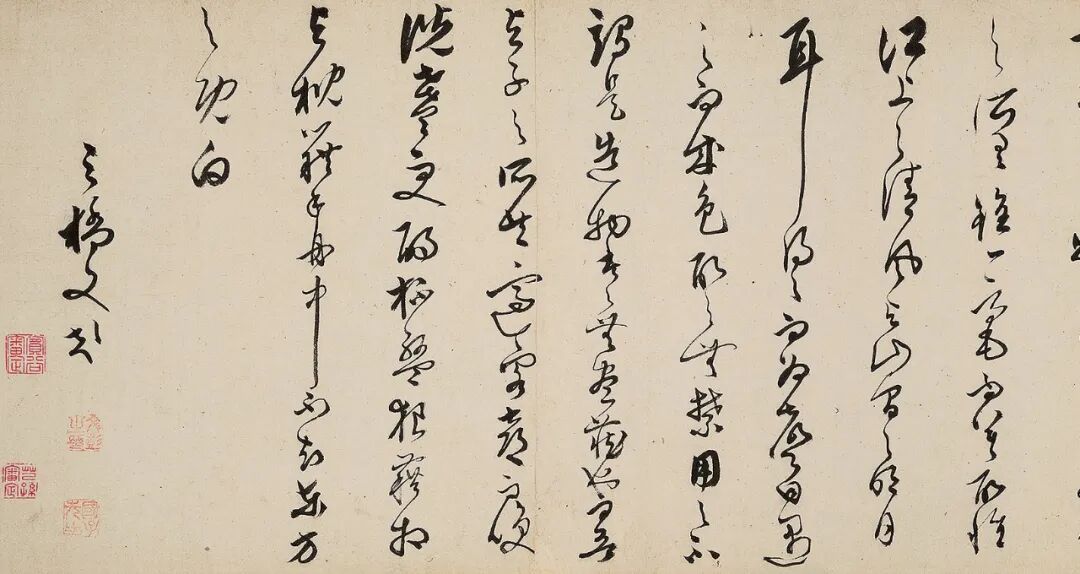 之所有雖一毫而莫取惟
江上之清風與山間之明月
耳得之而為聲目遇
之而成色取之無禁用之不
竭是造物者之無盡藏也而吾
與子之所共適客喜而笑
洗盞更酌杯盤狼藉相
與枕藉乎舟中不知東方
之既白
三橋文彭